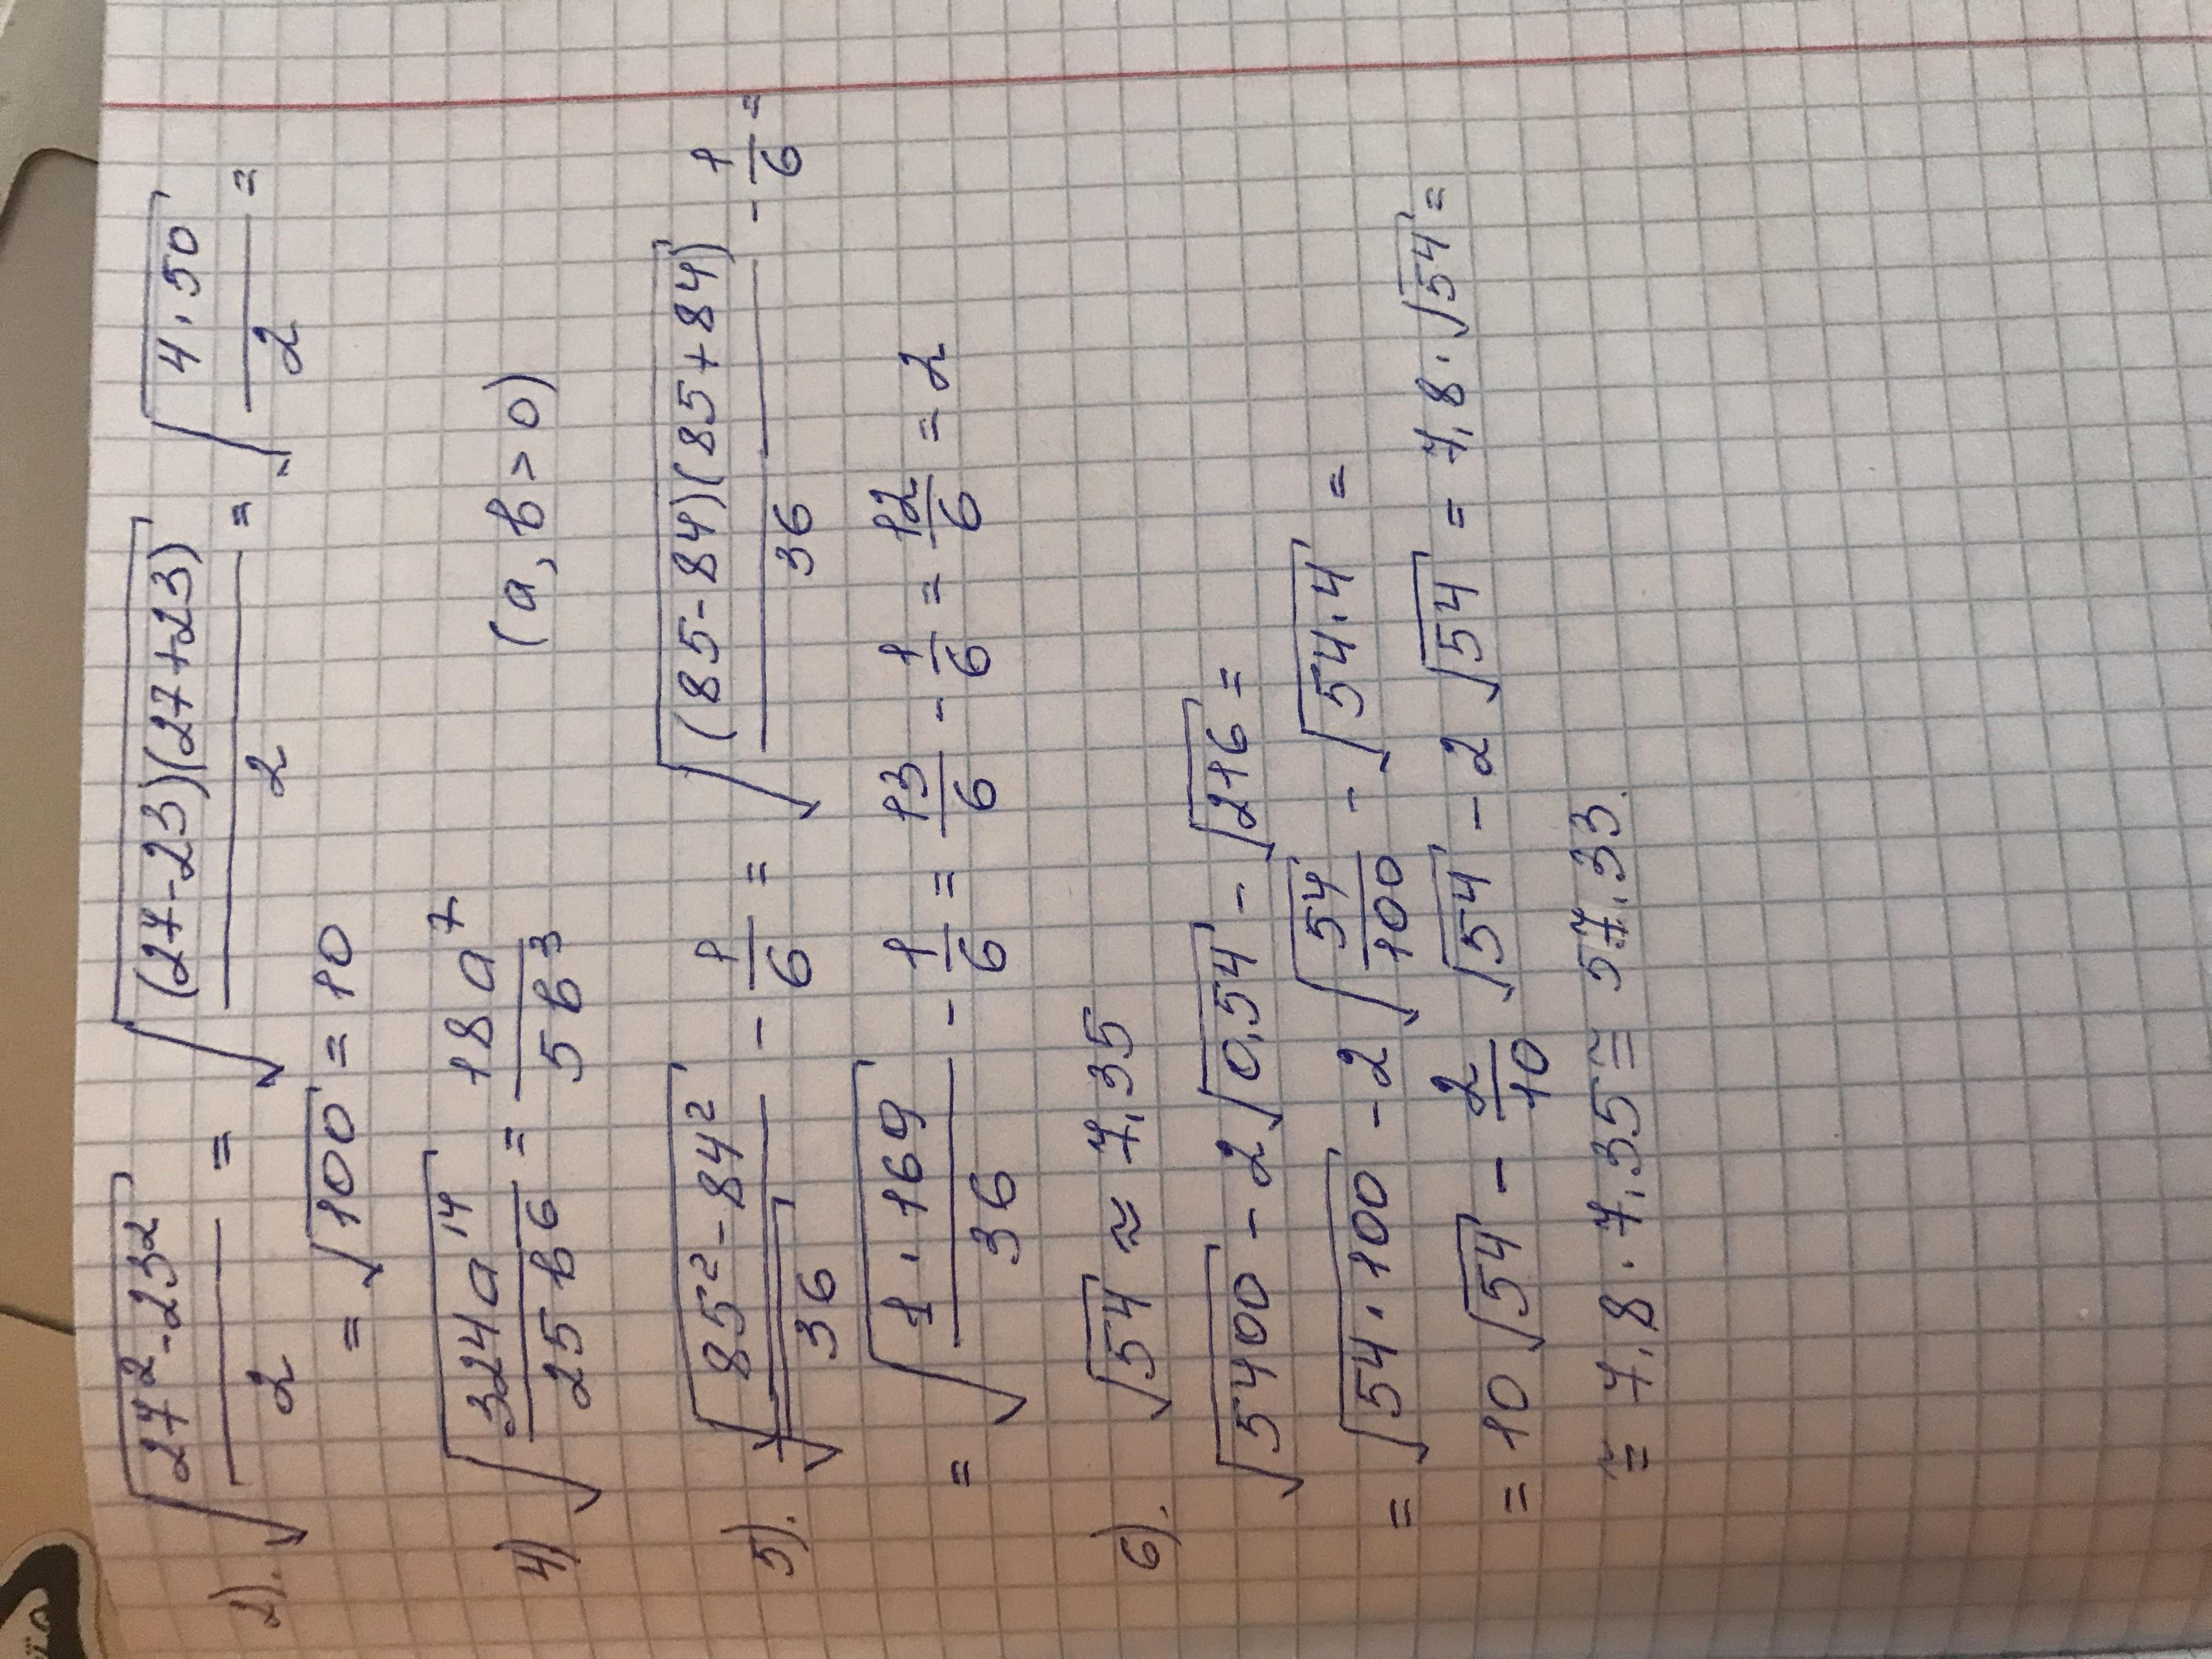 2). √((27²-23²)/2) = √(((27-23)(27+23))/2) = √((4·50)/2) =
= √100 = 10
4) √((324a¹⁴)/(25b⁶)) = (18a⁷)/(5b³) (a, b > 0)
5). √((85²-84²)/36) - 1/6 = √(((85-84)(85+84))/36) - 1/6 =
= √((1·169)/36) - 1/6 = 13/6 - 1/6 = 12/6 = 2
6). √54 ≈ 7,35
√5400 - 2√0,54 - √216 =
= √(54·100) - 2√(54/100) - √(54·4) =
= 10√54 - 2/10 √54 - 2√54 = 7,8·√54 =
≅ 7,8·7,35 ≅ 57,33.